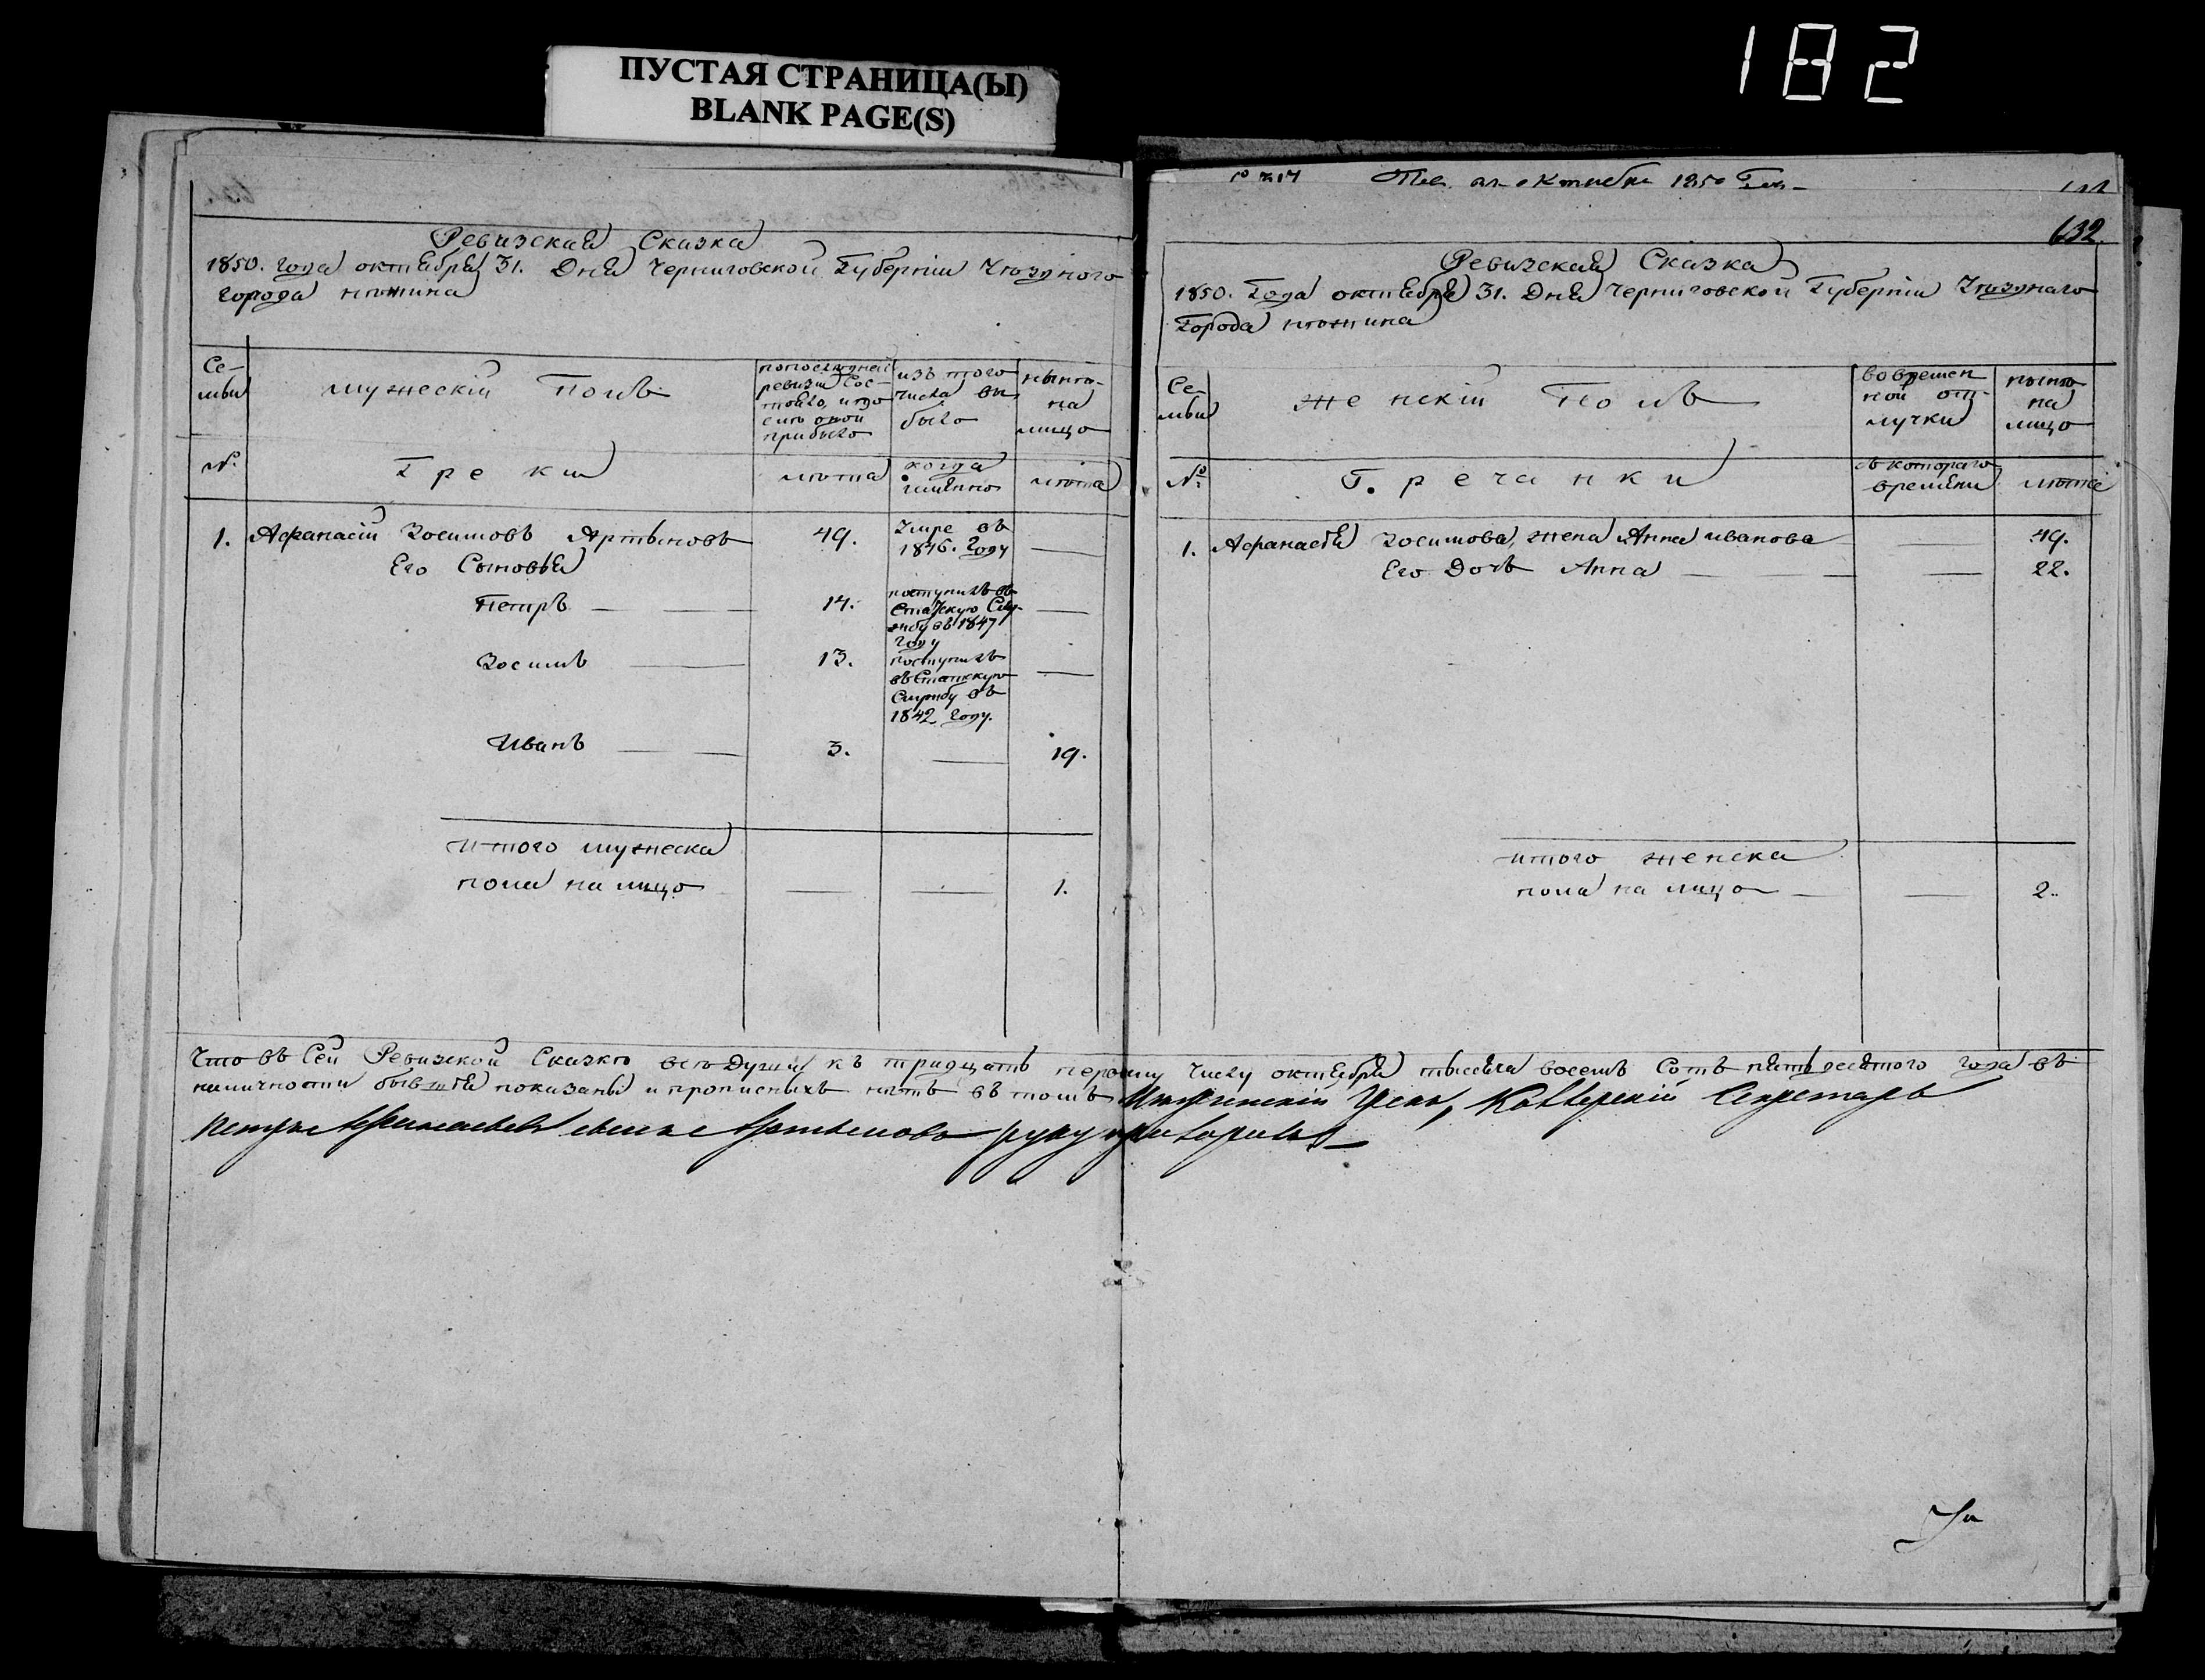 182
ПУСТАЯ СТРАНИЦА(Ы)
BLANK PAGE(S)
Ревизская Сказка
1850. года октября 31. Дня Черниговской Губерніи Уѣзднаго
города нѣжина
Се-
мьи
мужескій Полъ
попослѣдней
ревизіи Сос-
тояло, и по
слѣ оной
прибыло
изъ того
числа вы
было
нынѣ
на
лицо
№
Греки
лѣта
когда
именно
лѣта
1. Афанасій Зосимовъ Артыновъ 49. Умре въ
1846. Году
Его Сыновья
Петръ 14. поступилъ въ
Статскую Слу-
жбу въ 1847
Году
Зосимъ 13. поступилъ
въ Статскую
Службу въ
1842 Году.
Иванъ 3. 19.
итого мужеска
пола на лицо 1.
октября 1850
632
Ревизская Сказка
1850. Года октября 31. Дня Черниговской Губерніи Уѣзднаго
Города нѣжина
Се-
мьи
женскій Полъ
во времен
ной от-
лучки
нынѣ
на
лицо
№
Гречанки
съ котораго
времени
лѣта
1. Афанасія Зосимова, жена Анна иванова 49.
Его Дочь Анна 22.
итого женска
пола на лицо 2.
Что въ Сей Ревизской Сказкѣ всѣ Души къ тридцать первому числу октября тысяча восемь Сотъ пятьдесятого года въ
наличности бывшія показаны и прописныхъ нѣтъ въ томъ Нѣжинскій Грекъ, Коллежскій Секретарь
Петръ Афанасьевъ сынъ Артыновъ руку приложилъ